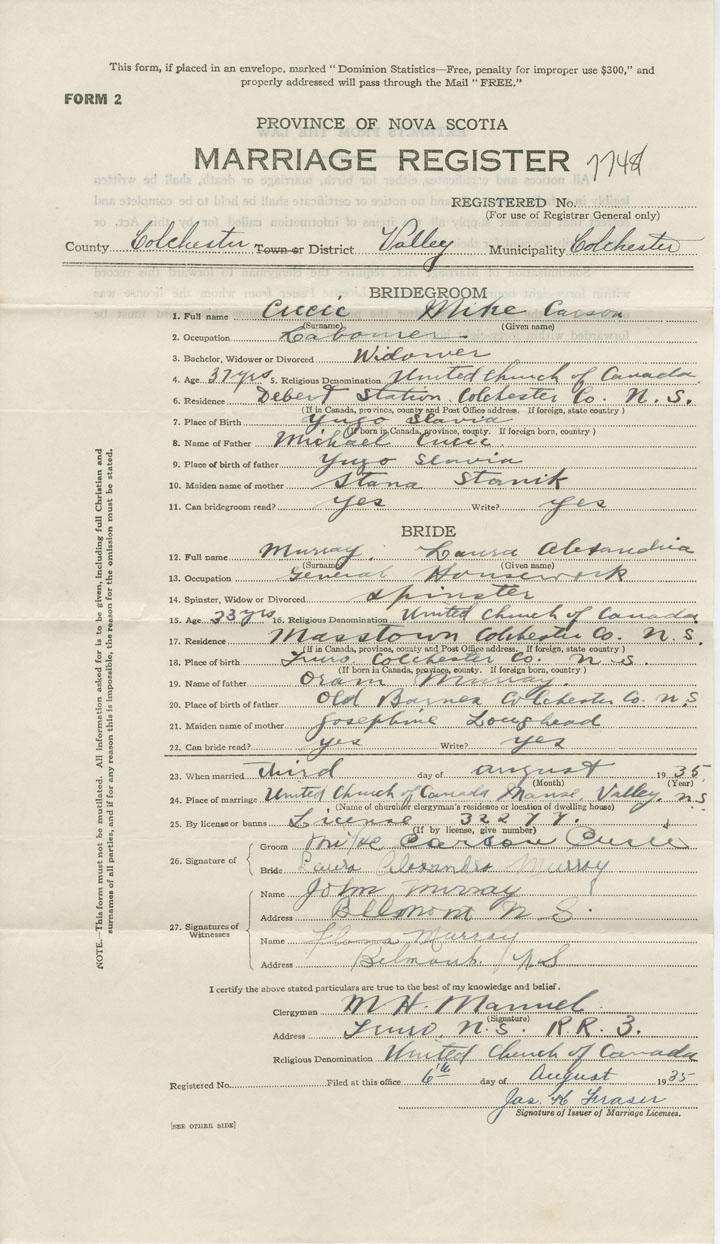 This form, if placed in an envelope, marked "Dominion Statistics—Free, penalty for improper use $300," and
properly addressed will pass through the Mail "FREE."
FORM 2
PROVINCE OF NOVA SCOTIA
MARRIAGE REGISTER 7748
REGISTERED No.
(For use of Registrar General only)
County Colchester Town or District Valley Municipality Colchester
BRIDEGROOM
1. Full name Cucic Mike Carson
(Surname) (Given name)
2. Occupation Labourer
3. Bachelor, Widower or Divorced Widower
4. Age 37 yrs 5. Religious Denomination United Church of Canada
6. Residence Debert Station Colchester Co. N. S.
(If in Canada, province, county and Post Office address. If foreign, state country)
7. Place of Birth Yugo Slavia
(If born in Canada, province, county. If foreign born, country)
8. Name of Father Michael Cucic
9. Place of birth of father Yugo Slavia
10. Maiden name of mother Stana Stanik
11. Can bridegroom read? yes Write? yes
BRIDE
12. Full name Murray Laura Alexandria
(Surname) (Given name)
13. Occupation General Housework
14. Spinster, Widow or Divorced Spinster
15. Age 33 yrs 16. Religious Denomination United Church of Canada
17. Residence Masstown Colchester Co. N. S.
(If in Canada, province, county and Post Office address. If foreign, state country)
18. Place of birth Truro Colchester Co. N. S.
(If born in Canada, province, county. If foreign born, country)
19. Name of father Oram Murray
20. Place of birth of father Old Barnes Colchester Co. N.S
21. Maiden name of mother Josephine Loughead
22. Can bride read? yes Write? yes
23. When married Third day of August 1935
(Month) (Year)
24. Place of marriage United Church of Canada Manse, Valley, N.S
(Name of church or clergyman's residence or location of dwelling house)
25. By license or banns License 32277.
(If by license, give number)
26. Signature of
Groom Mike Carson Cucic
Bride Laura Alexandra Murray
27. Signatures of Witnesses
Name John Murray
Address Belmont N S.
Name Murray
Address Belmont N S
I certify the above stated particulars are true to the best of my knowledge and belief.
Clergyman M. H. Manuel
(Signature)
Address Truro, N.S. R.R. 3.
Religious Denomination United Church of Canada
Registered No. Filed at this office 6th day of August 1935
Jas. H Fraser
Signature of Issuer of Marriage Licenses.
[SEE OTHER SIDE]
NOTE.—This form must not be mutilated. All information asked for is to be given, including full Christian and
surnames of all parties, and if for any reason this is impossible, the reason for the omission must be stated.